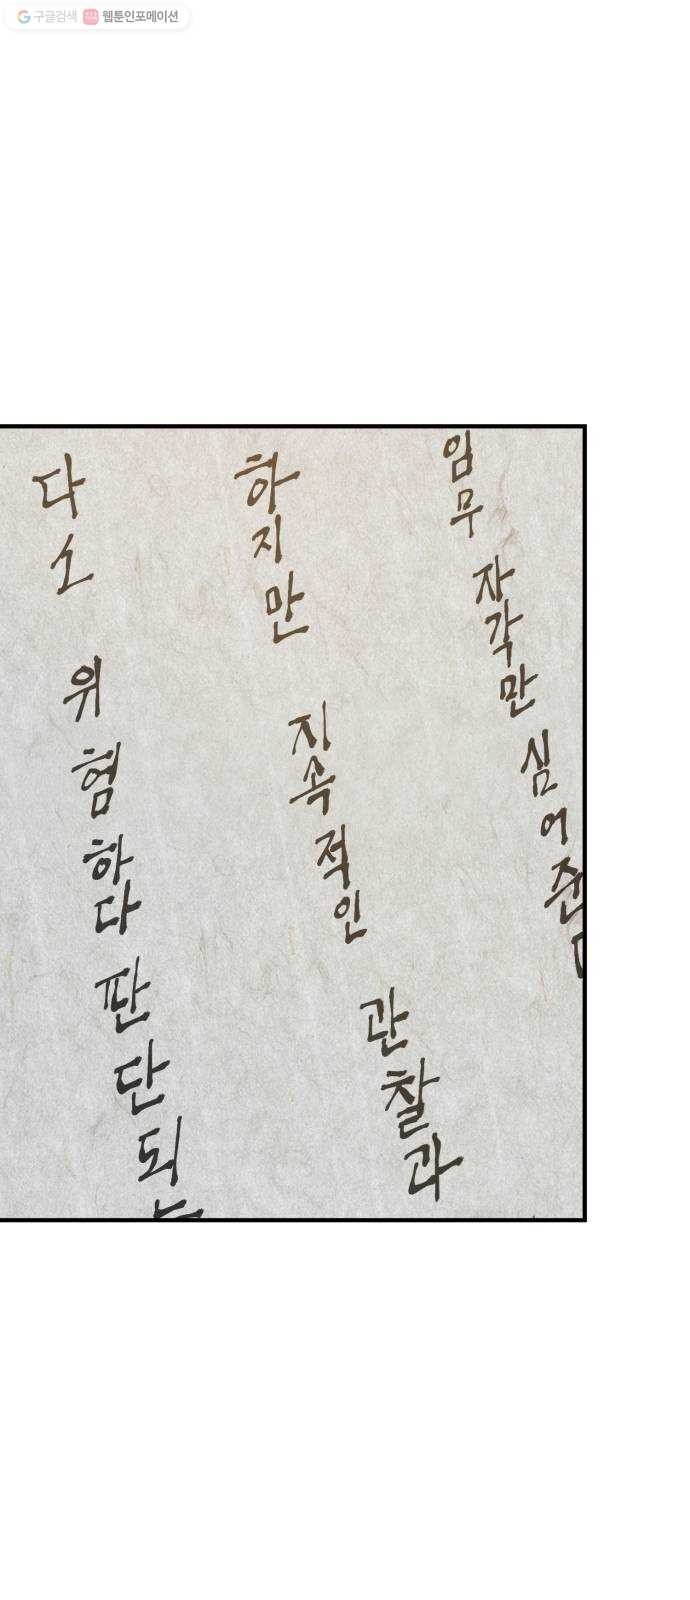 구글검색 웹툰인포메이션
임무 자각만 심어준
하지만 지속적인 관찰과
다소 위험하다 판단되는